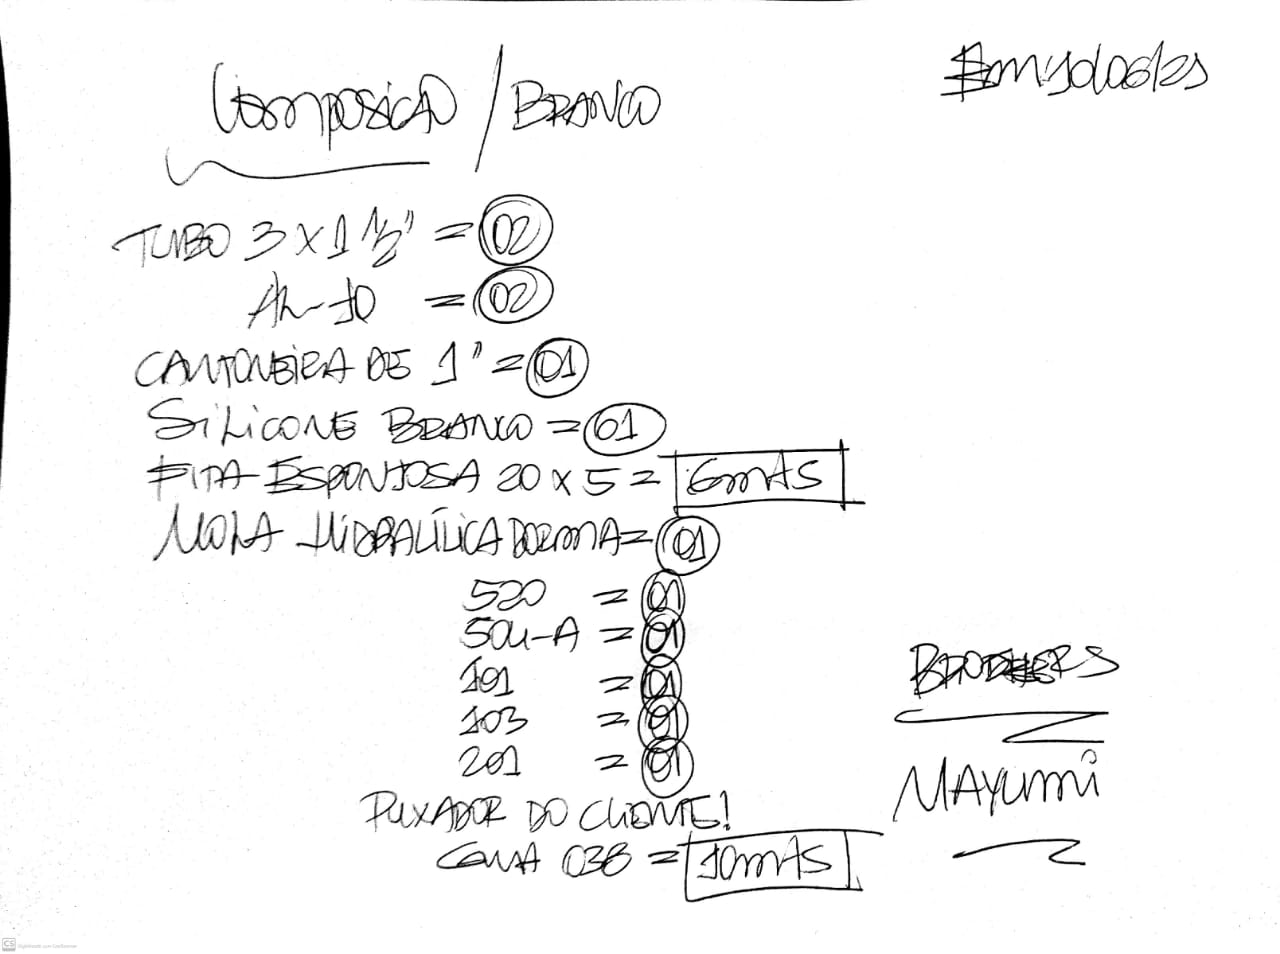 COMPOSIÇÃO / BRANCO
TUBO 3 X 1 1/2" = 02
AL-10 = 02
CANTONEIRA DE 1" = 01
SILICONE BRANCO = 01
FITA ESPONJOSA 20 X 5 = 6mts
MOLA HIDRAÚLICA DORMA = 01
520 = 01
504-A = 01
101 = 01
103 = 01
201 = 01
PUXADOR DO CLIENTE!
038 = 10mts
BROTHERS
MAYUMI
CS Digitalizado com CamScanner